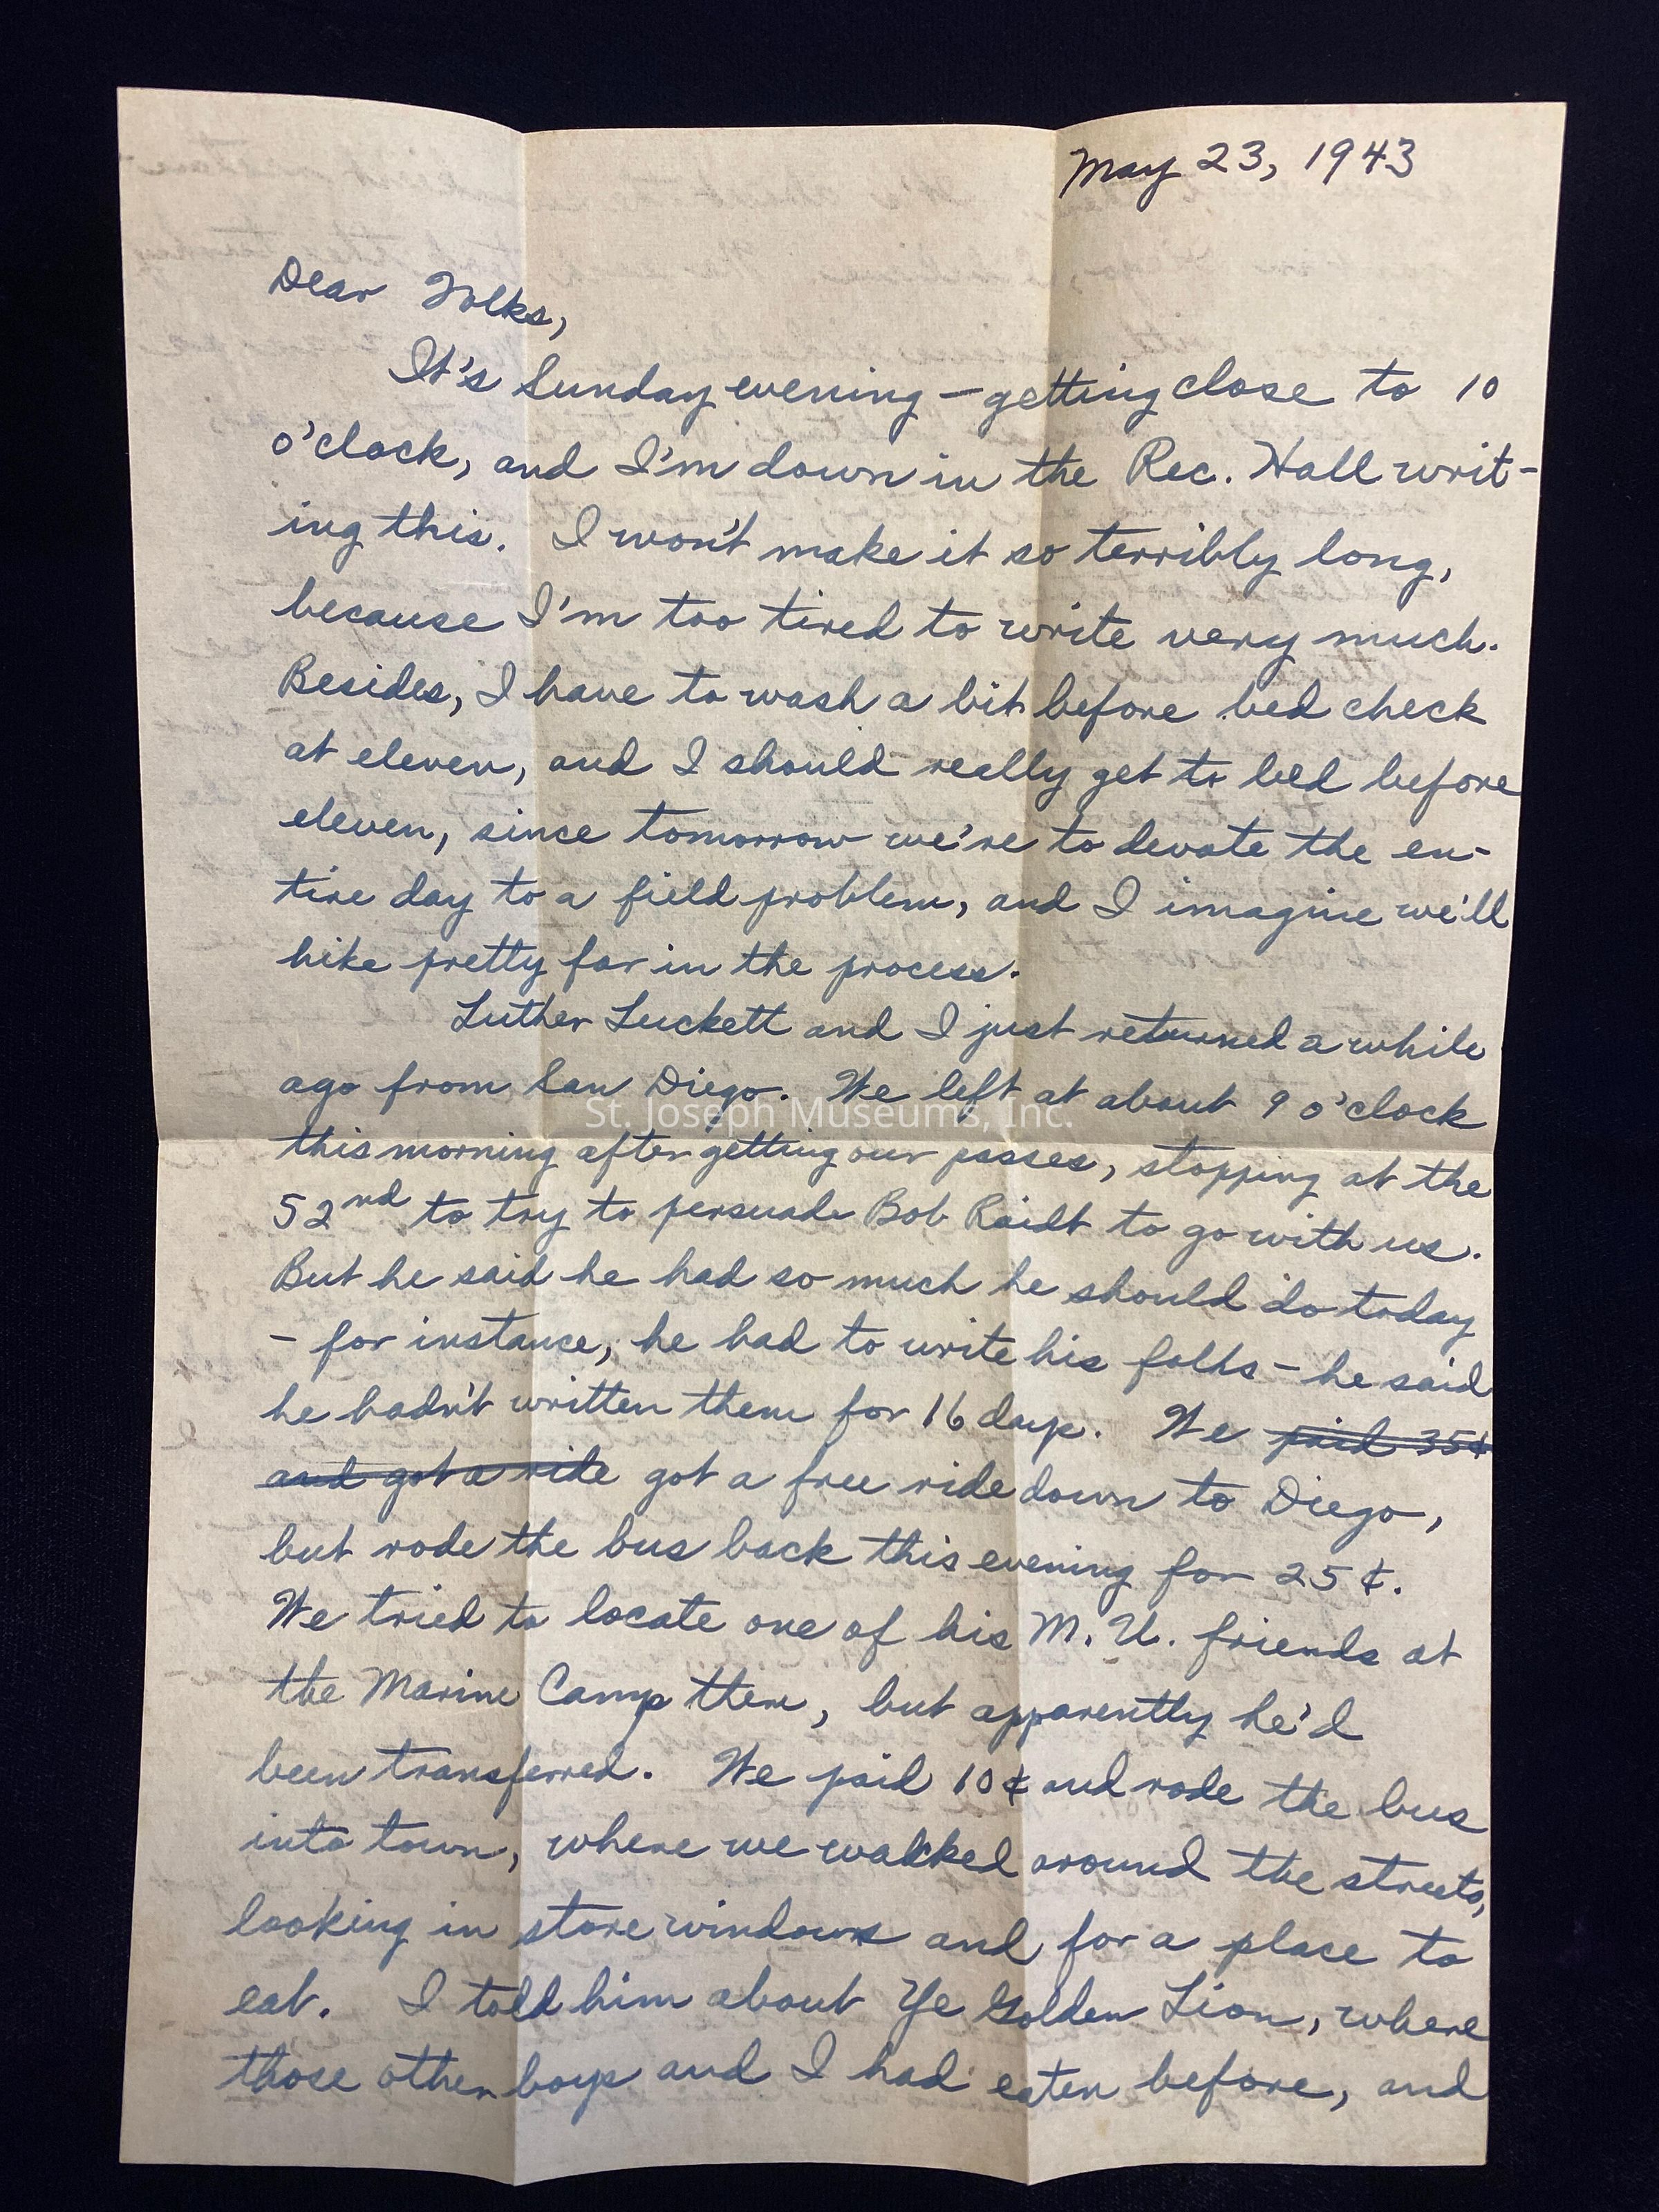 May 23, 1943
Dear Folks,
It's Sunday evening - getting close to 10
o'clock, and I'm down in the Rec. Hall writ-
ing this. I won't make it so terribly long,
because I'm too tired to write very much.
Besides, I have to wash a bit before bed check
at eleven, and I should really get to bed before
eleven, since tomorrow we're to devote the en-
tire day to a field problem, and I imagine we'll
hike pretty far in the process.
Luther Luckett and I just returned a while
ago from San Diego. We left at about 9 o'clock
St. Joseph Museums, Inc.
this morning after getting our passes, stopping at the
52nd to try to persuade Bob Raidt to go with us.
But he said he had so much he should do today
- for instance, he had to write his folks - he said
he hadn't written them for 16 days. We paid 35¢
and got a ride got a free ride down to Diego,
but rode the bus back this evening for 25¢.
We tried to locate one of his M.U. friends at
the Marine Camp there, but apparently he'd
been transferred. We paid 10¢ and rode the bus
into town, where we walked around the streets,
looking in store windows and for a place to
eat. I told him about Ye Golden Lion, where
those other boys and I had eaten before, and